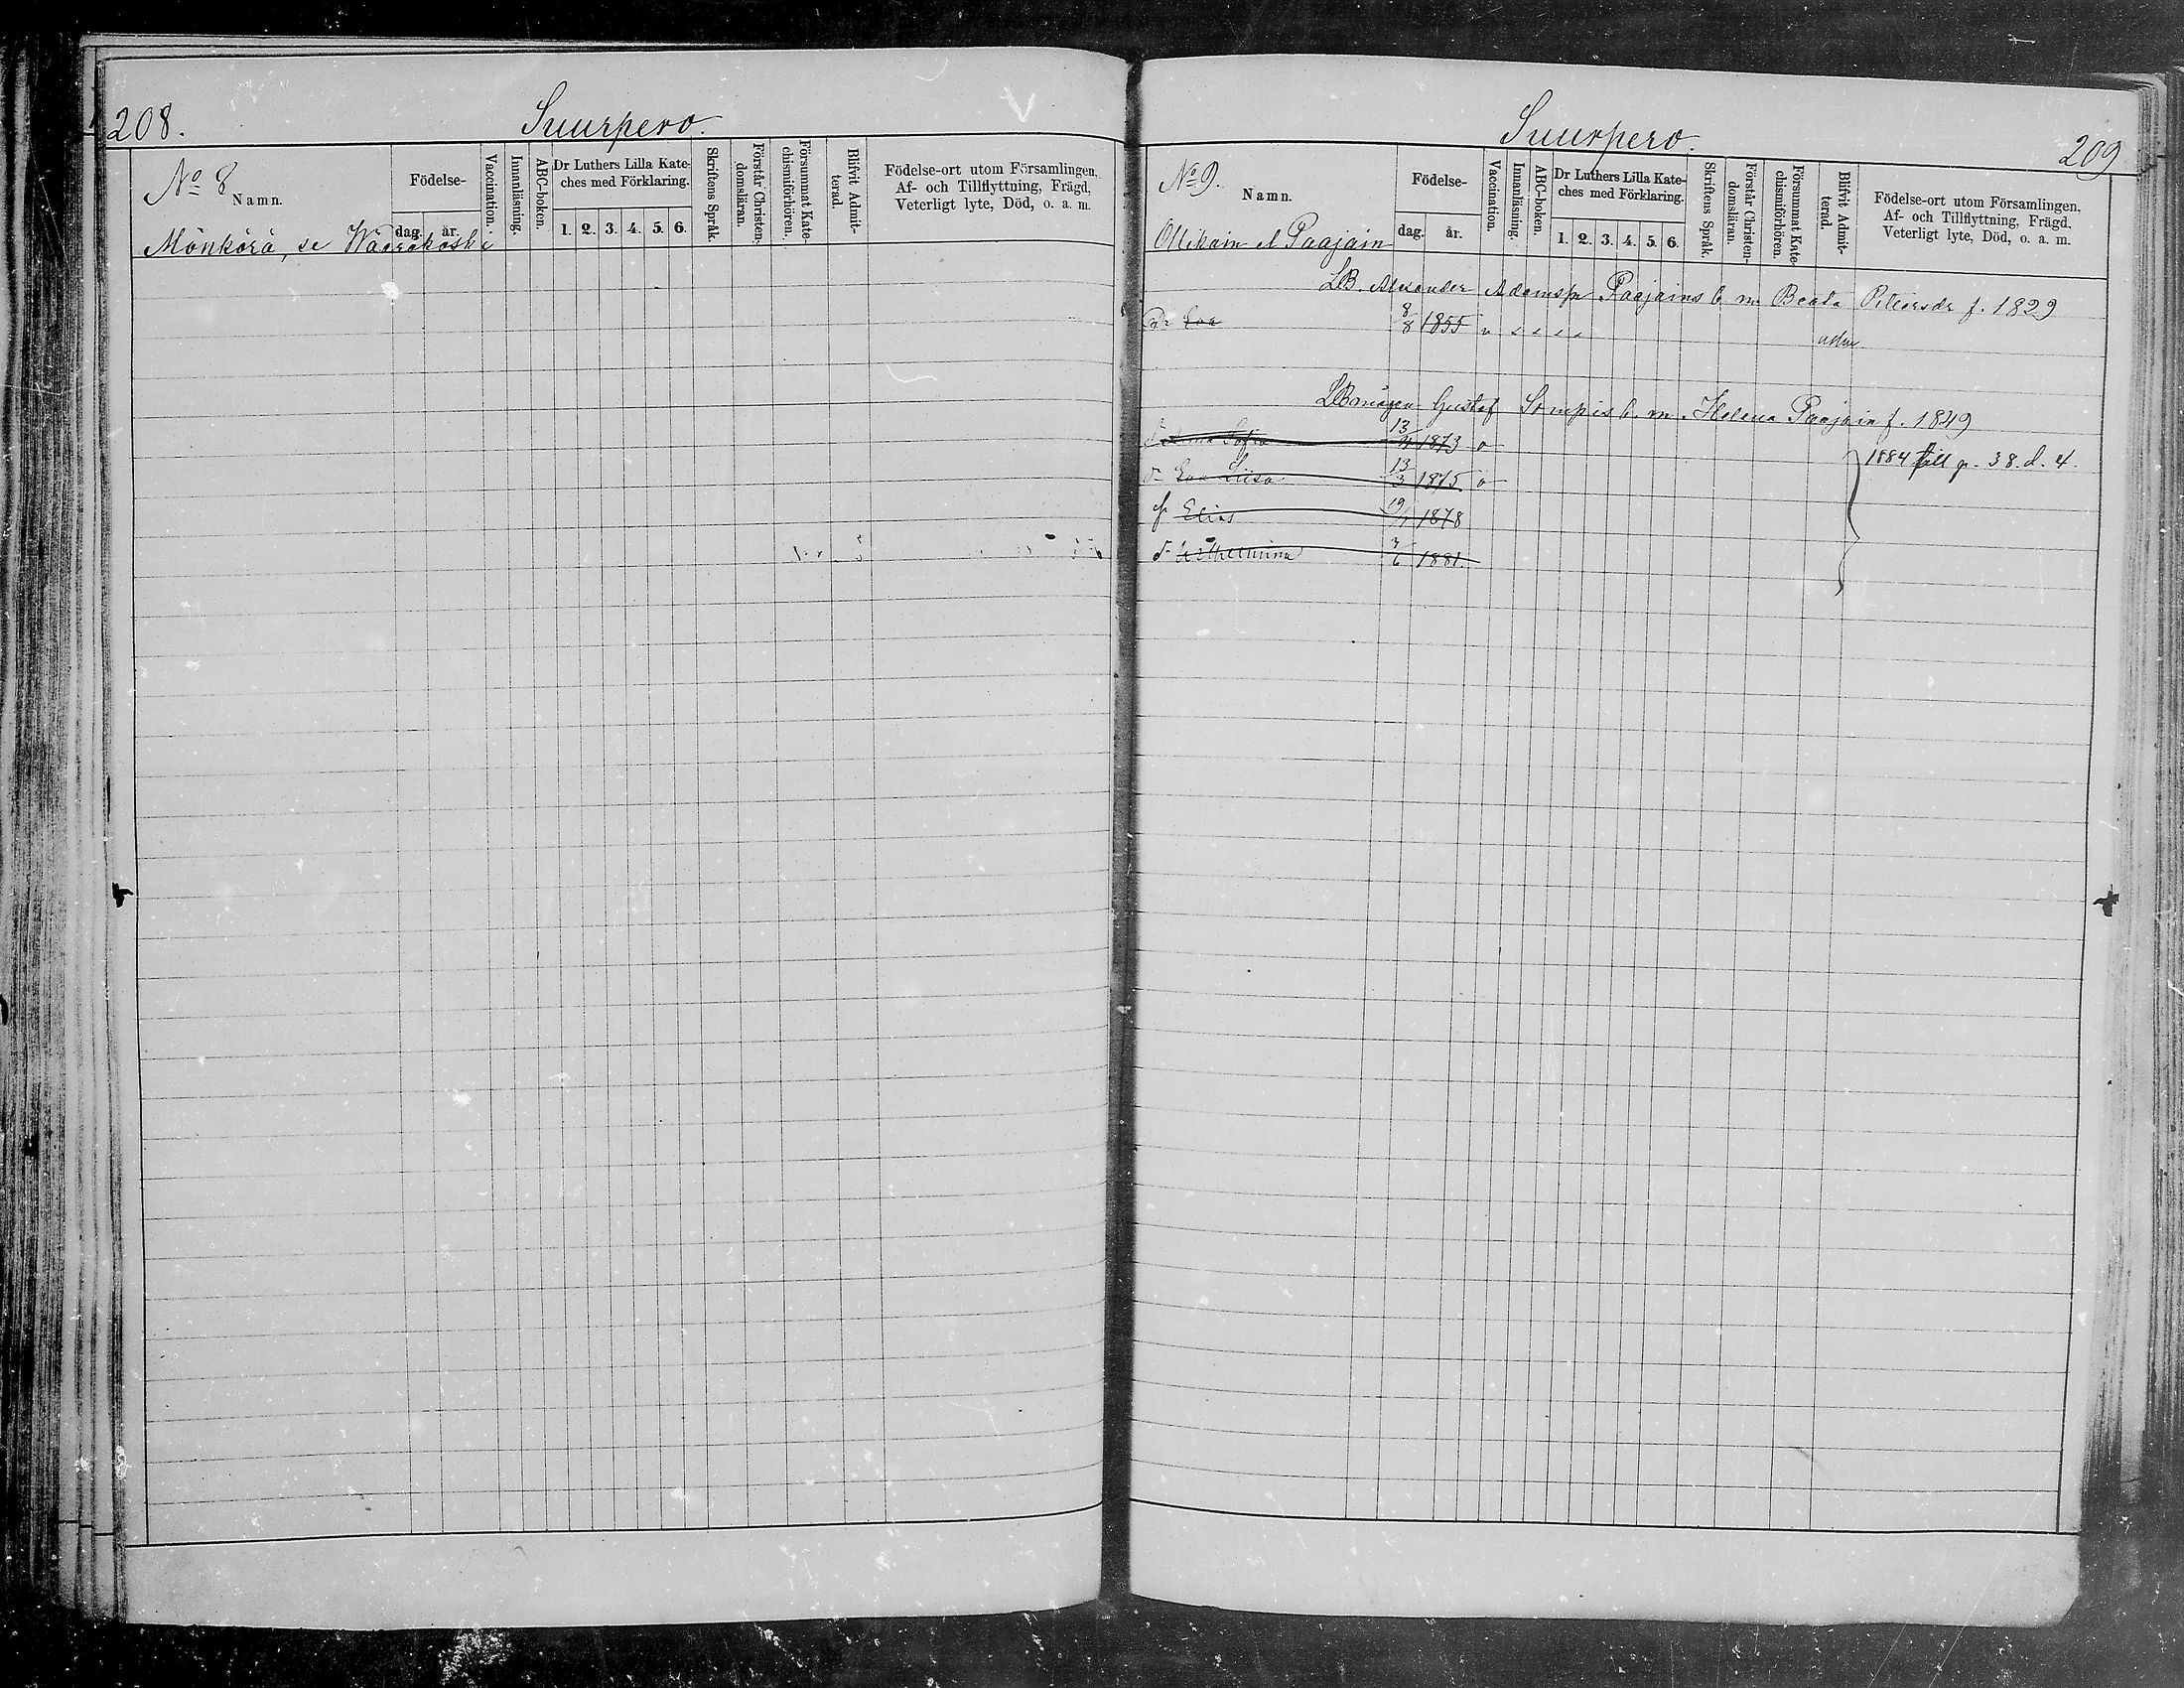 208.
Suurpero.
No 8
Namn.
Födelse-
dag.
år.
Vaccination.
Innanläsning.
ABC-boken.
Dr Luthers Lilla Kate-
ches med Förklaring.
1. 2. 3. 4. 5. 6.
Skriftens Språk.
Förstår Christen-
domsläran.
Försummat Kate-
chismiförhören.
Blifvit Admit-
terad.
Födelse-ort utom Församlingen,
Af- och Tillflyttning, Frägd,
Veterligt lyte, Död, o. a. m.
Mönkörä, se Wäärakoski
Suurpero.
209
No 9.
Namn.
Födelse-
dag.
år.
Vaccination.
Innanläsning.
ABC-boken.
Dr Luthers Lilla Kate-
ches med Förklaring.
1. 2. 3. 4. 5. 6.
Skriftens Språk.
Förstår Christen-
domsläran.
Försummat Kate-
chismiförhören.
Blifvit Admit-
terad.
Födelse-ort utom Församlingen,
Af- och Tillflyttning, Frägd,
Veterligt lyte, Död, o. a. m.
Ollikain el Paajain
LB. Alexander Adamsson Paajains b. m. Beata f. 1829
Eva 8/8 1855 v
adm
LBmågen Gustaf Sompis b. m. Helena Paajain f. 1849
Sofia 1873
d Eva Liisa 13/3 1875
Elias 1878
d Wilhelmina 1881.
1884 till p. 38. d. 4.